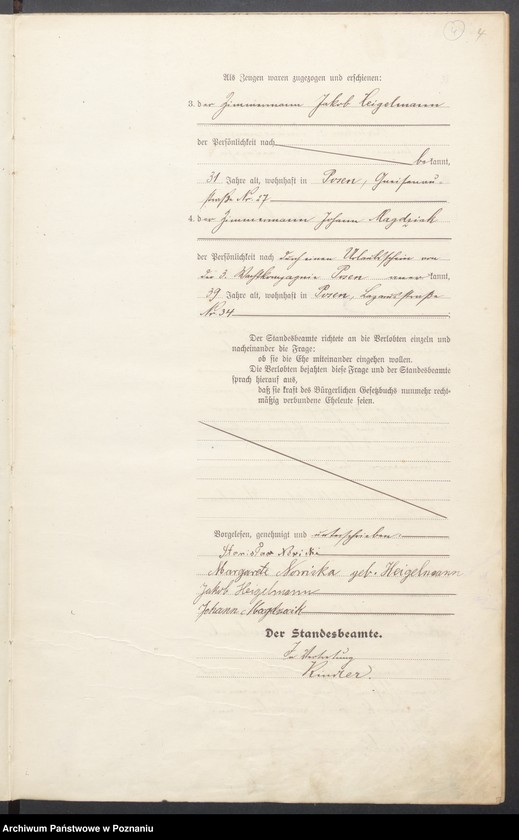 4
4
Als Zeugen waren zugezogen und erschienen:
3. der Zimmermann Jakob Heigelmann
der Persönlichkeit nach
bekannt,
31 Jahre alt, wohnhaft in Posen, Gneisenau-
straße Nr. 27
4. der Zimmermann Johann Magdziak
der Persönlichkeit nach durch einen Urlaubsschein von
der 3. Wachtkompagnie Posen anerkannt,
39 Jahre alt, wohnhaft in Posen, straße
Nr. 34
Der Standesbeamte richtete an die Verlobten einzeln und
nacheinander die Frage:
ob sie die Ehe miteinander eingehen wollen.
Die Verlobten bejahten diese Frage und der Standesbeamte
sprach hierauf aus,
daß sie kraft des Bürgerlichen Gesetzbuchs nunmehr recht-
mäßig verbundene Eheleute seien.
Vorgelesen, genehmigt und unterschrieben.
Nowicki
Margarete Nowicka geb. Heigelmann
Jakob Heigelmann
Johann Magdziak
Der Standesbeamte.
In Vertretung
Kindler.
Archiwum Państwowe w Poznaniu